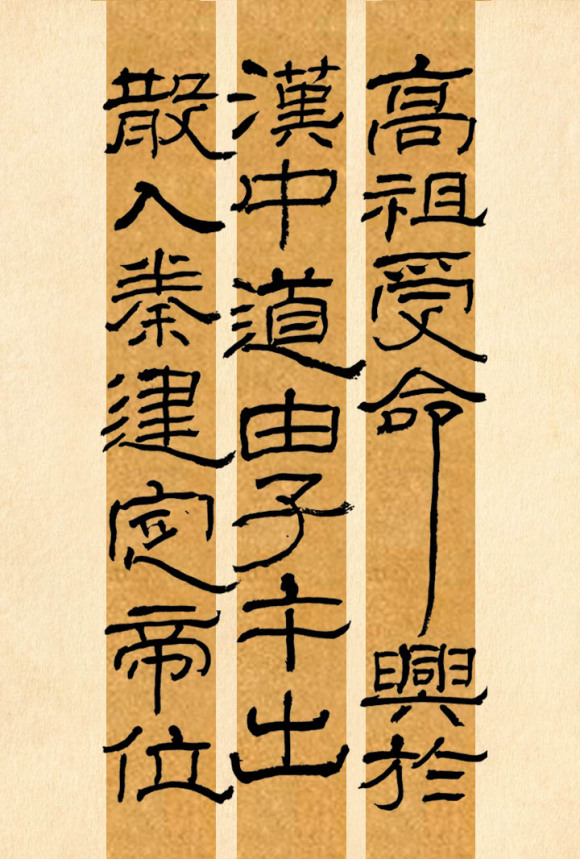 高祖受命興於
漢中道由子午出
散入秦建定帝位